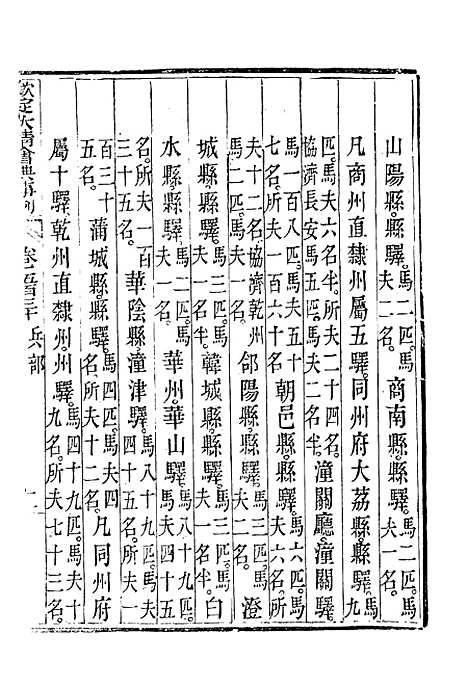 山陽縣縣驛。馬二匹。馬夫二名。商南縣縣驛。馬二匹。馬夫一名。
凡商州直隸州屬五驛。同州府大荔縣縣驛。馬九
匹。馬夫六名半。所夫二十四名半。協濟長安馬五匹。馬夫二名半。潼關廳潼關驛。
馬一百八匹。馬夫五十七名。所夫一百六十名。朝邑縣縣驛。馬六匹。馬夫六名。所
夫十二名。協濟乾州馬二匹。馬夫一名。郃陽縣縣驛。馬三匹。馬夫一名半。澄
城縣縣驛。馬三匹。馬夫一名半。韓城縣縣驛。馬三匹。馬夫一名半。白
水縣縣驛。馬二匹。馬夫一名。華州華山驛。馬八十九匹。馬夫四十五
名。所夫一百三十五名。華陰縣潼津驛。馬八十九匹。馬夫四十五名。所夫一
百三十五名。蒲城縣縣驛。馬四匹。馬夫四名。所夫十二名。凡同州府
屬十驛。乾州直隸州州驛。馬十九匹。馬夫十九名。所夫七十三名。
欽定大清會典事例 卷五百三十 兵部